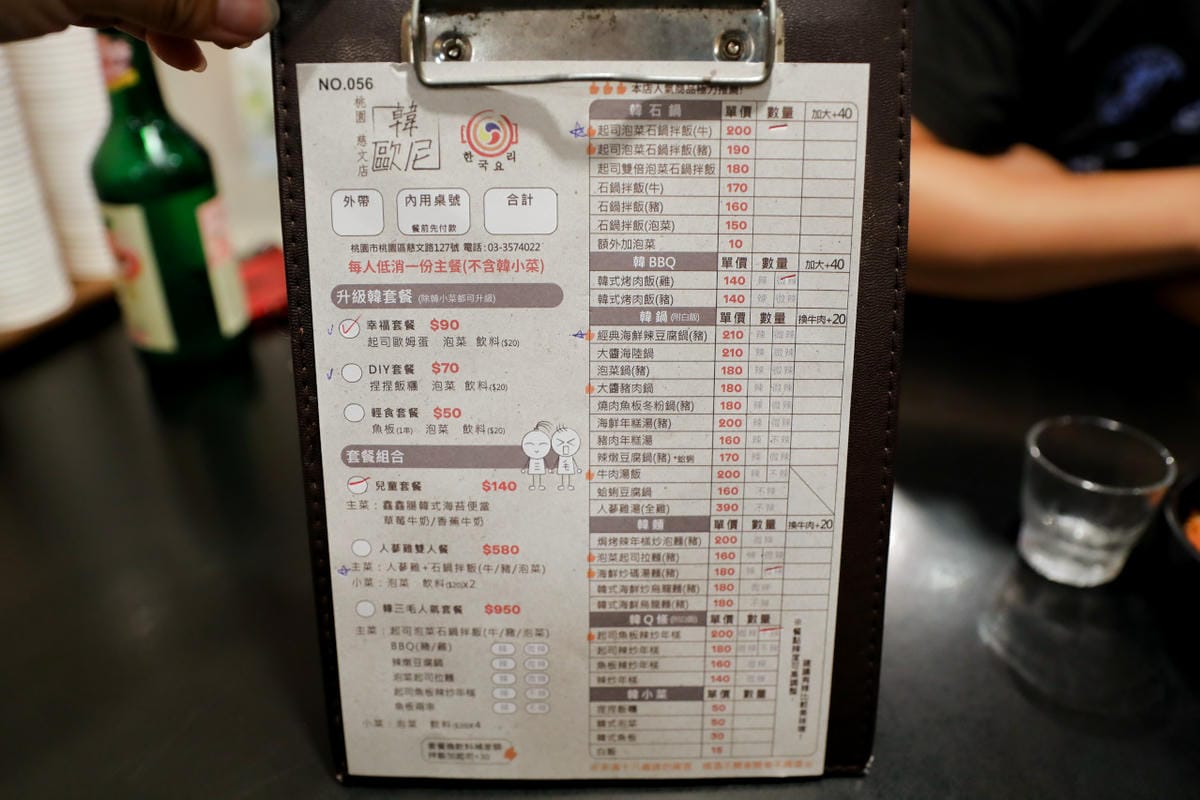 NO.056
桃園 慈文店
韓歐尼
한국요리
外帶
內用桌號
餐前先付款
合計
桃園市桃園區慈文路127號 電話:03-3574022
每人低消一份主餐(不含韓小菜)
升級韓套餐 (除韓小菜都可升級)
幸福套餐 $90
起司歐姆蛋 泡菜 飲料($20)
DIY套餐 $70
捏捏飯糰 泡菜 飲料($20)
輕食套餐 $50
魚板(1串) 泡菜 飲料($20)
套餐組合
兒童套餐 $140
主菜：鑫鑫腸韓式海苔便當
草莓牛奶/香蕉牛奶
人蔘雞雙人餐 $580
主菜：人蔘雞+石鍋拌飯(牛/豬/泡菜)
小菜：泡菜 飲料($20)X2
韓三毛人氣套餐 $950
主菜：起司泡菜石鍋拌飯(牛/豬/泡菜)
BBQ(豬/雞) 辣 微辣
辣燉豆腐鍋 辣 微辣
泡菜起司拉麵 辣 微辣
起司魚板辣炒年糕 辣 不辣
魚板兩串 辣 不辣
小菜：泡菜 飲料($20)X4
本店人氣商品極力推薦!
韓石鍋 單價 數量 加大+40
起司泡菜石鍋拌飯(牛) 200
起司泡菜石鍋拌飯(豬) 190
起司雙倍泡菜石鍋拌飯 180
石鍋拌飯(牛) 170
石鍋拌飯(豬) 160
石鍋拌飯(泡菜) 150
額外加泡菜 10
韓BBQ 單價 數量 加大+40
韓式烤肉飯(雞) 140 辣 微辣
韓式烤肉飯(豬) 140 辣 微辣
韓鍋 (附白飯) 單價 數量 換牛肉+20
經典海鮮辣豆腐鍋(豬) 210 辣 微辣
大醬海陸鍋 210 辣 微辣
泡菜鍋(豬) 180 辣 微辣
大醬豬肉鍋 180 辣 微辣
燒肉魚板冬粉鍋(豬) 180 辣 微辣
海鮮年糕湯(豬) 200 辣 微辣
豬肉年糕湯 160 辣 不辣
辣燉豆腐鍋(豬) *蛤蜊 170 辣 微辣
牛肉湯飯 200 辣 不辣
蛤蜊豆腐鍋 160 不辣
人蔘雞湯(全雞) 390 不辣
韓麵 單價 數量 換牛肉+20
焗烤辣年糕炒泡麵(豬) 200 微辣
泡菜起司拉麵(豬) 160 辣 微辣
海鮮炒碼湯麵(豬) 180 辣
韓式海鮮炒烏龍麵(豬) 180 微辣
韓式海鮮烏龍麵(豬) 180 不辣
韓Q條 單價 數量
起司魚板辣炒年糕 200 微辣 不辣
起司辣炒年糕 180 微辣 不辣
魚板辣炒年糕 160 微辣
辣炒年糕 140 微辣
韓小菜 單價 數量
捏捏飯糰 50
韓式泡菜 50
韓式魚板 30
白飯 15
※餐點辣度可調整,
建議有辣比較美味喔!